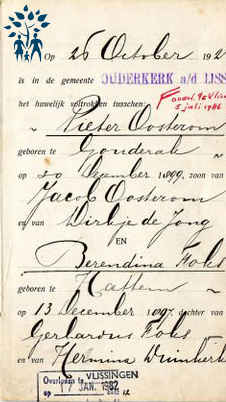 Op 26 October 192
is in de gemeente OUDERKERK a/d IJSS
het huwelijk voltrokken tusschen:
5 juli 1986
Pieter Oosterom
geboren te Gouderak
op 20 1899, zoon van
Jacob Oosterom
en van Dirkje de Jong
EN
Berendina Foks
geboren te Hattem
op 13 December 1897, dochter van
Gerhardus Foks
en van Hermina
Overleden te VLISSINGEN
op 7 JAN. 1982